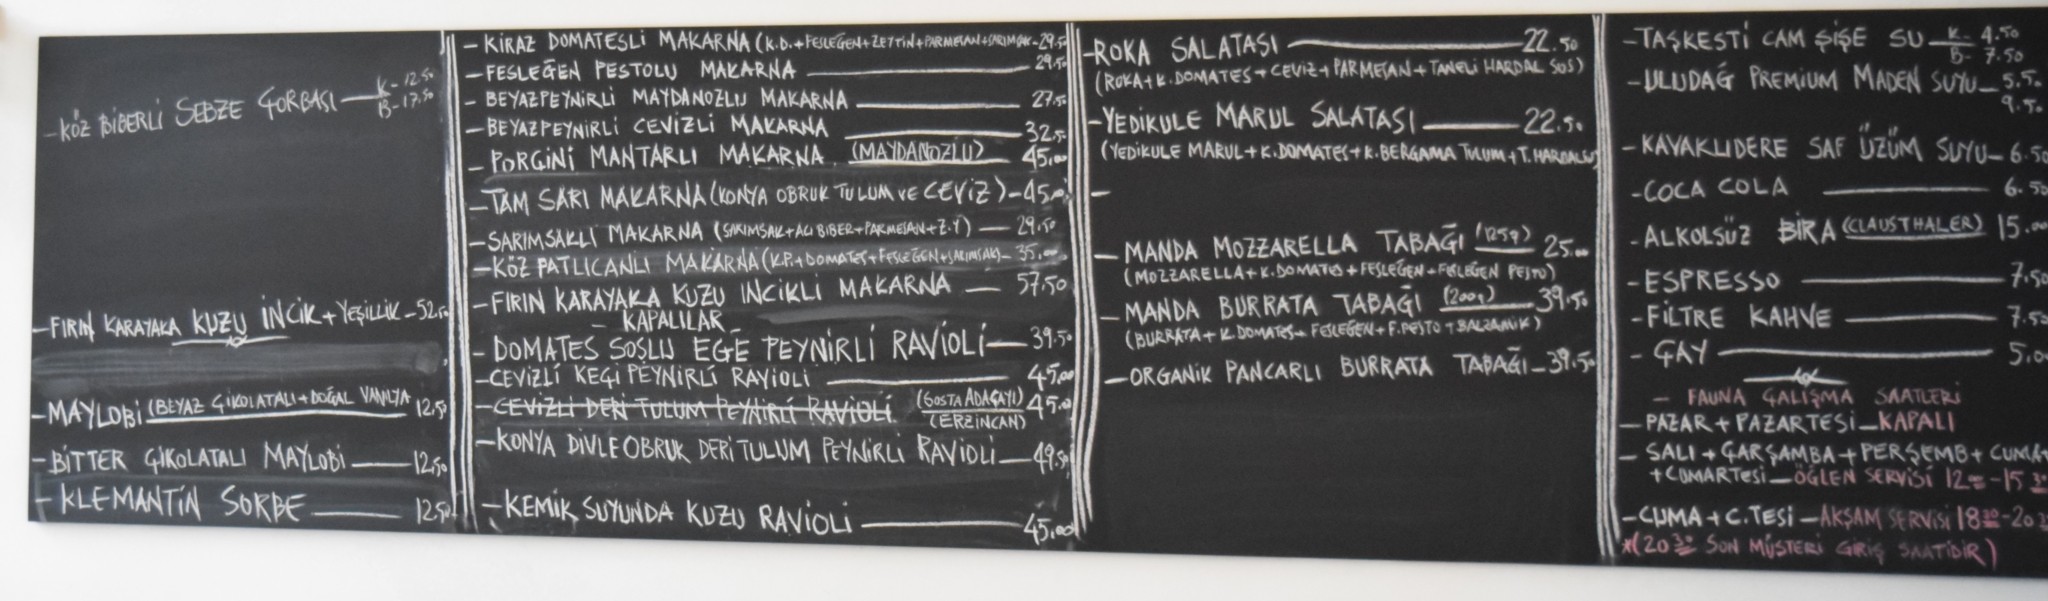 -KÖZ BİBERLİ SEBZE ÇORBASI — K- 12.50
B- 17.50
-FIRIN KARAYAKA KUZU İNCİK+YEŞİLLİK -52.50
-MAYLOBİ (BEYAZ ÇİKOLATALI+DOĞAL VANİLYA 12.50
-BİTTER ÇİKOLATALI MAYLOBİ — 12.50
-KLEMANTİN SORBE — 12.50
-KİRAZ DOMATESLİ MAKARNA (K.D.+FESLEĞEN+ZEYTİN+PARMESAN+SARIMSAK -29.50
-FESLEĞEN PESTOLU MAKARNA — 29.50
-BEYAZPEYNİRLİ MAYDANOZLU MAKARNA — 27.50
-BEYAZPEYNİRLİ CEVİZLİ MAKARNA — 32.50
-PORÇİNİ MANTARLI MAKARNA (MAYDANOZLU) 45.00
-TAM SARI MAKARNA (KONYA OBRUK TULUM VE CEVİZ) -45.00
-SARIMSAKLI MAKARNA (SARIMSAK+ACI BİBER+PARMESAN+Z.Y) — 29.50
-KÖZ PATLICANLI MAKARNA (K.P.+DOMATES+FESLEĞEN+SARIMSAK)- 35.00
-FIRIN KARAYAKA KUZU İNCİKLİ MAKARNA — 57.50
- KAPALILAR -
-DOMATES SOSLU EGE PEYNİRLİ RAVİOLİ — 39.50
-CEVİZLİ KEÇİ PEYNİRLİ RAVİOLİ — 45.00
-CEVİZLİ DERİ TULUM PEYNİRLİ RAVİOLİ (SOSTA ADAÇAYI) 45.00
(ERZİNCAN)
-KONYA DİVLE OBRUK DERİ TULUM PEYNİRLİ RAVİOLİ — 49.50
-KEMİK SUYUNDA KUZU RAVİOLİ — 45.00
-ROKA SALATASI — 22.50
(ROKA+K.DOMATES+CEVİZ+PARMESAN+TANELİ HARDAL SOS)
-YEDİKULE MARUL SALATASI — 22.50
(YEDİKULE MARUL+K.DOMATES+K.BERGAMA TULUM+T.HARDAL
-
-MANDA MOZZARELLA TABAĞI (125g) 25.00
(MOZZARELLA+K.DOMATES+FESLEĞEN+FESLEĞEN PESTO)
-MANDA BURRATA TABAĞI (200g) 39.50
(BURRATA+K.DOMATES+FESLEĞEN+F.PESTO+BALZAMİK)
-ORGANİK PANCARLI BURRATA TABAĞI -39.50
-TAŞKESTİ CAM ŞİŞE SU — K- 4.50
B- 7.50
-ULUDAĞ PREMIUM MADEN SUYU -5.50
9.50
-KAVAKLIDERE SAF ÜZÜM SUYU- 6.50
-COCA COLA — 6.50
-ALKOLSÜZ BİRA (CLAUSTHALER) 15.00
-ESPRESSO — 7.50
-FİLTRE KAHVE — 7.50
-ÇAY — 5.00
- FAUNA ÇALIŞMA SAATLERİ
-PAZAR+PAZARTESİ -KAPALI
- SALI+ÇARŞAMBA+PERŞEMB+CUMA+
+CUMARTESİ -ÖĞLEN SERVİSİ 12 00 -15 30
-CUMA+C.TESİ -AKŞAM SERVİSİ 18 30 -20 30
*(20 30 SON MÜŞTERİ GİRİŞ SAATİDİR)